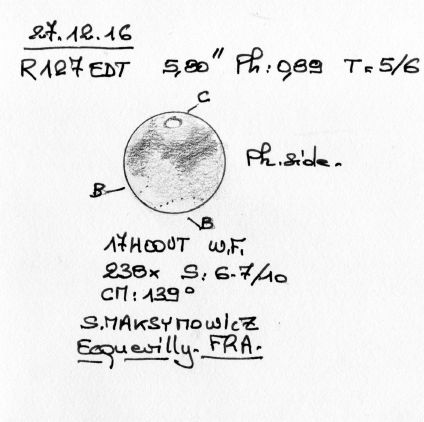 27.12.16
R127EDT 5,80" Ph: 0,89 T= 5/6
C
Ph. side.
B
B
17H00UT W.F.
238x S: 6-7/10
CM: 139°
S. MAKSYMOWICZ
Ecquevilly. FRA.